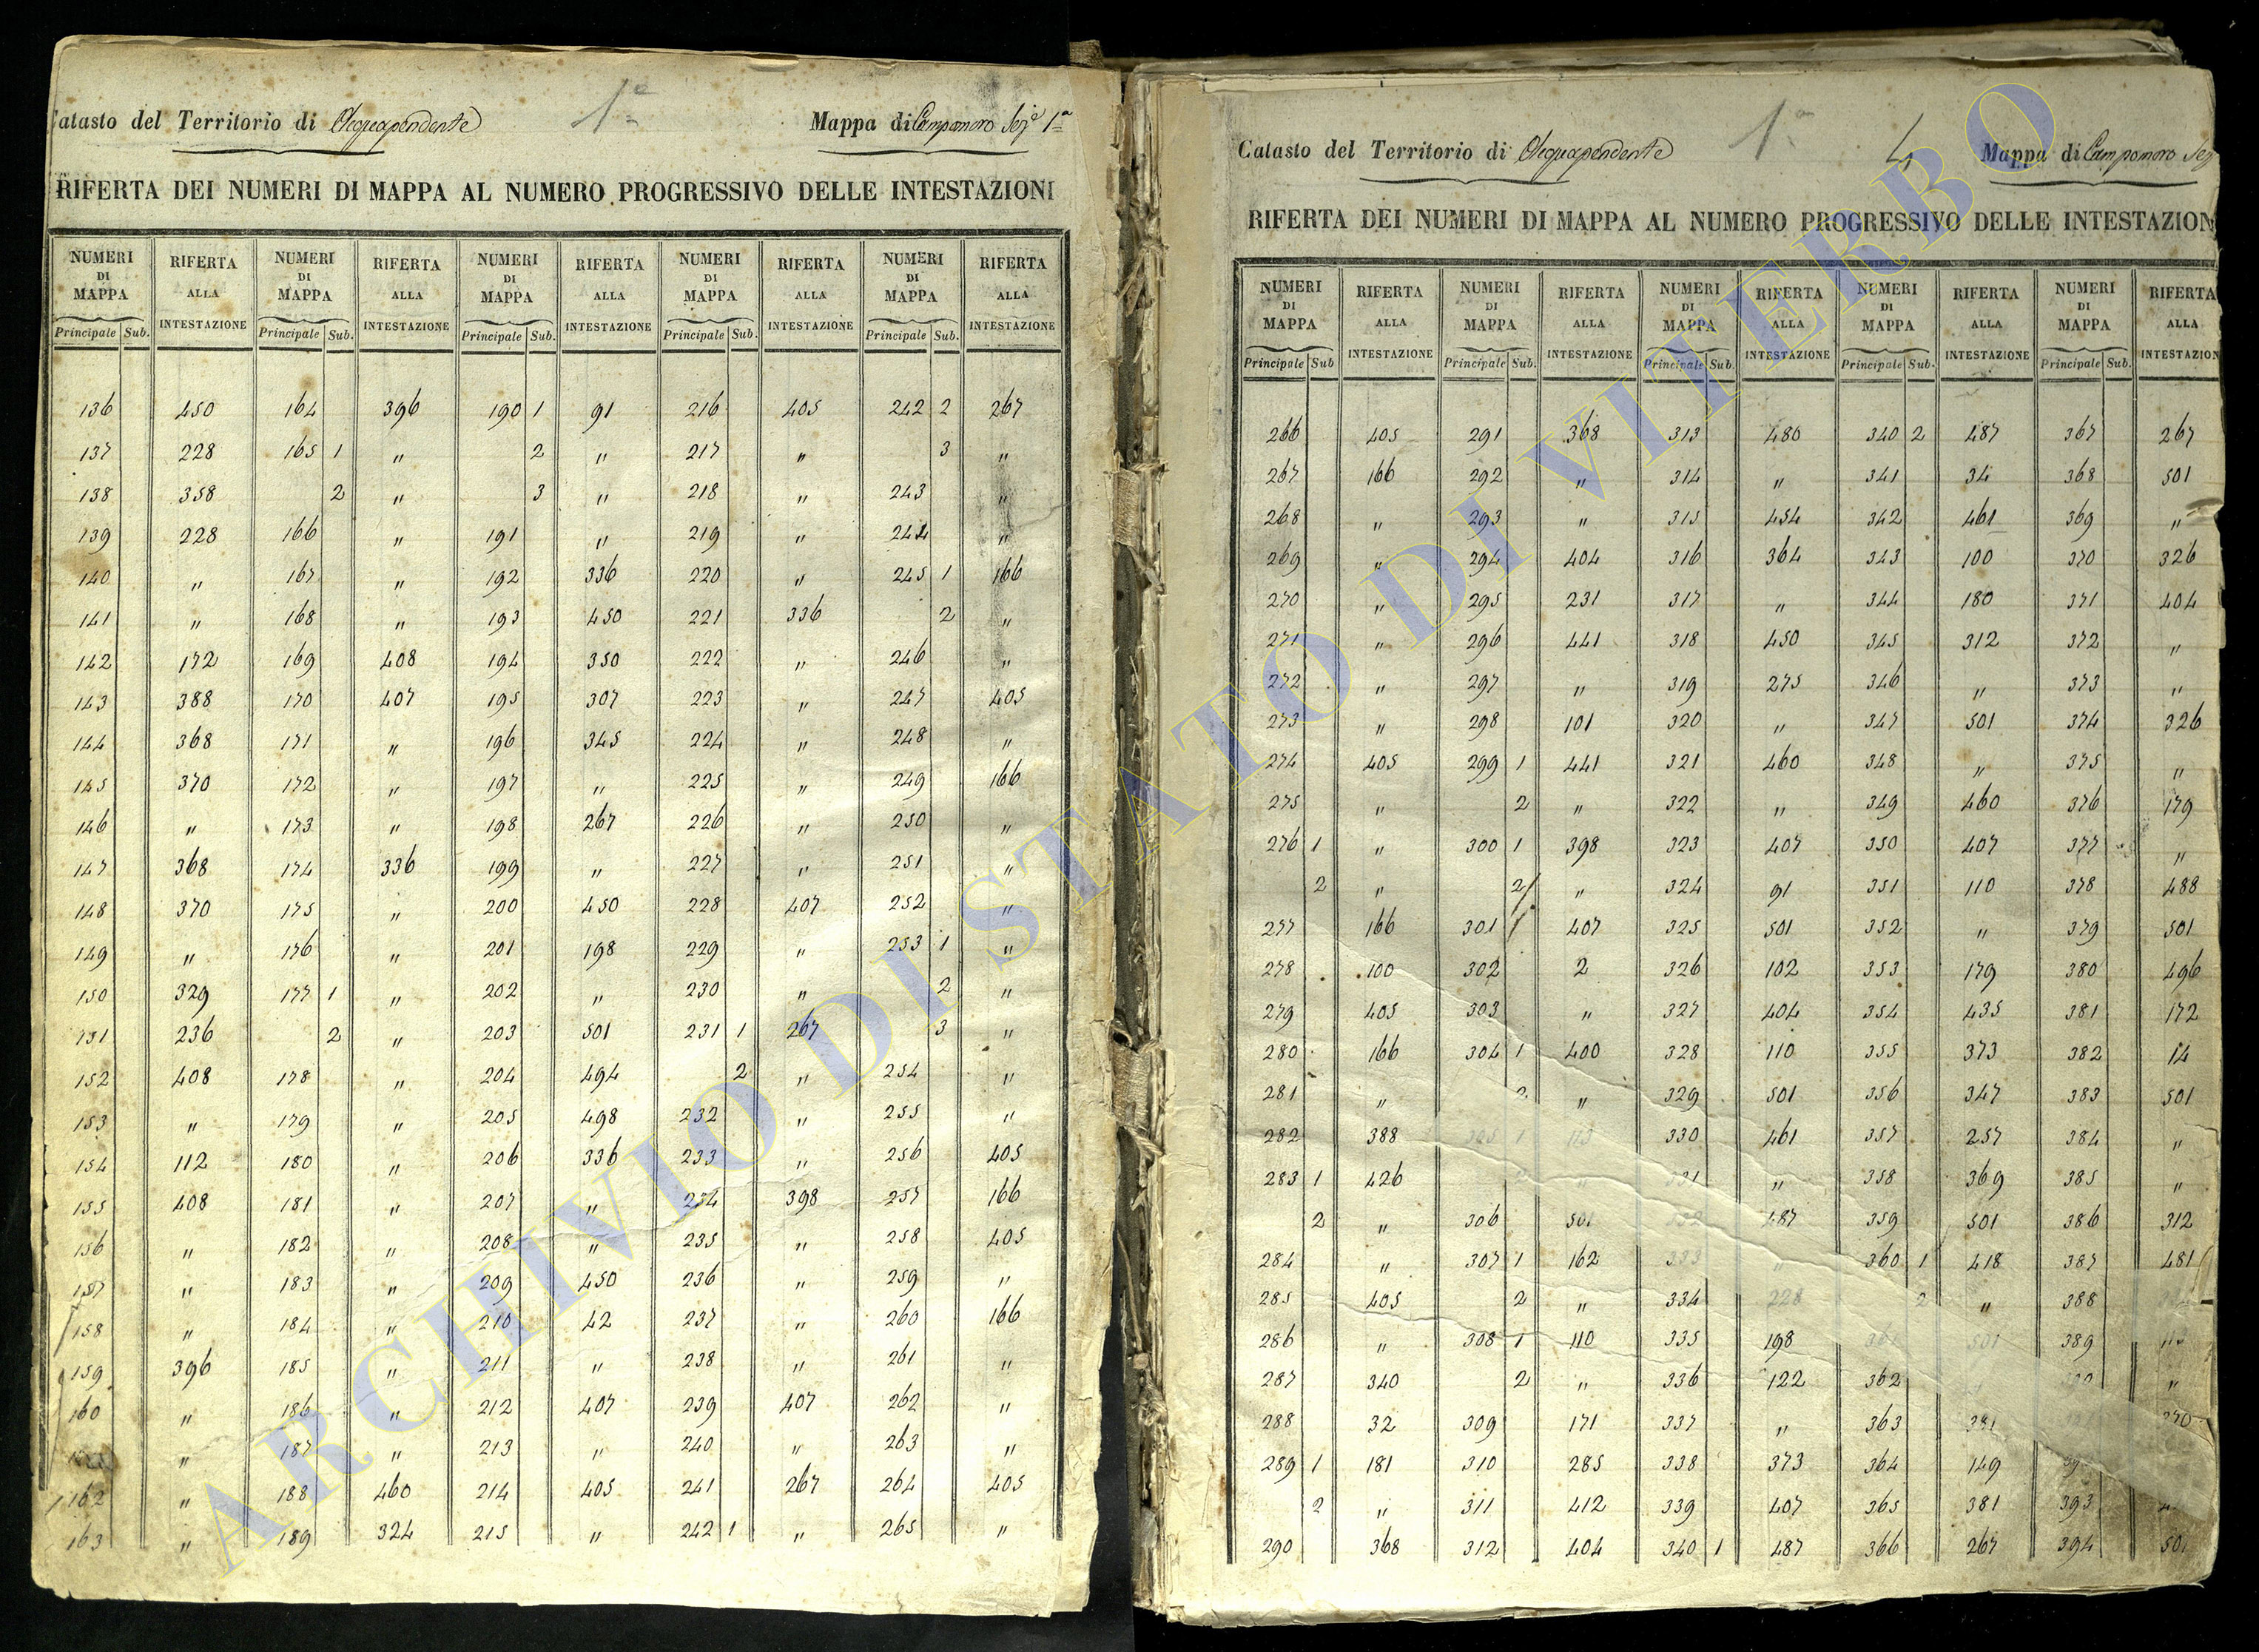 Catasto del Territorio di Acquapendente 1a Mappa di Campomoro Seze 1a
RIFERTA DEI NUMERI DI MAPPA AL NUMERO PROGRESSIVO DELLE INTESTAZIONI
NUMERI RIFERTA NUMERI RIFERTA NUMERI RIFERTA NUMERI RIFERTA NUMERI RIFERTA
DI ALLA DI ALLA DI ALLA DI ALLA DI ALLA
MAPPA INTESTAZIONE MAPPA INTESTAZIONE MAPPA INTESTAZIONE MAPPA INTESTAZIONE MAPPA INTESTAZIONE
Principale Sub. Principale Sub. Principale Sub. Principale Sub. Principale Sub.
136 450 164 396 190 1 91 216 405 242 2 267
137 228 165 1 " 2 " 217 " 3 "
138 358 2 " 3 " 218 " 243 "
139 228 166 " 191 " 219 " 244 "
140 " 167 " 192 336 220 " 245 1 166
141 " 168 " 193 450 221 336 2 "
142 172 169 408 194 350 222 " 246 "
143 388 170 407 195 307 223 " 247 405
144 368 171 " 196 345 224 " 248 "
145 370 172 " 197 " 225 " 249 166
146 " 173 " 198 267 226 " 250 "
147 368 174 336 199 " 227 " 251 "
148 370 175 " 200 450 228 407 252 "
149 " 176 " 201 198 229 " 253 1 "
150 329 177 1 " 202 " 230 " 2 "
151 236 2 " 203 501 231 1 267 3 "
152 408 178 " 204 494 2 " 254 "
153 " 179 " 205 498 232 " 255 "
154 112 180 " 206 336 233 " 256 405
155 408 181 " 207 " 234 398 257 166
156 " 182 " 208 " 235 " 258 405
157 " 183 " 209 450 236 " 259 "
158 " 184 " 210 42 237 " 260 166
159 396 185 " 211 " 238 " 261 "
160 " 186 " 212 407 239 407 262 "
" 187 " 213 " 240 " 263 "
162 " 188 460 214 405 241 267 264 405
163 " 189 324 215 " 242 1 " 265 "
Catasto del Territorio di Acquapendente 1a 4 Mappa di Campomoro Sez
RIFERTA DEI NUMERI DI MAPPA AL NUMERO PROGRESSIVO DELLE INTESTAZION
NUMERI RIFERTA NUMERI RIFERTA NUMERI RIFERTA NUMERI RIFERTA NUMERI RIFERTA
DI ALLA DI ALLA DI ALLA DI ALLA DI ALLA
MAPPA INTESTAZIONE MAPPA INTESTAZIONE MAPPA INTESTAZIONE MAPPA INTESTAZIONE MAPPA INTESTAZION
Principale Sub Principale Sub. Principale Sub. Principale Sub. Principale Sub.
266 405 291 368 313 480 340 2 487 367 267
267 166 292 " 314 " 341 34 368 501
268 " 293 " 315 454 342 461 369 "
269 " 294 404 316 364 343 100 370 326
270 " 295 231 317 " 344 180 371 404
271 " 296 441 318 450 345 312 372 "
272 " 297 " 319 275 346 " 373 "
273 " 298 101 320 " 347 501 374 326
274 405 299 1 441 321 460 348 " 375 "
275 " 2 " 322 " 349 460 376 179
276 1 " 300 1 398 323 407 350 407 377 "
2 " 2 " 324 91 351 110 378 488
277 166 301 407 325 501 352 " 379 501
278 100 302 2 326 102 353 179 380 496
279 405 303 " 327 404 354 435 381 172
280 166 304 1 400 328 110 355 373 382 14
281 " 2 " 329 501 356 347 383 501
282 388 305 1 113 330 461 357 257 384 "
283 1 426 " " 358 369 385 "
2 " 306 501 332 487 359 501 386 312
284 " 307 1 162 333 " 360 1 418 387 481
285 405 2 " 334 228 2 " 388
286 " 308 1 110 335 198 361 501 389
287 340 2 " 336 122 362 "
288 32 309 171 337 " 363 381
289 1 181 310 285 338 373 364 149
2 " 311 412 339 407 365 381 393
290 368 312 404 340 1 487 366 267 394 501
ARCHIVIO DI STATO DI VITERBO